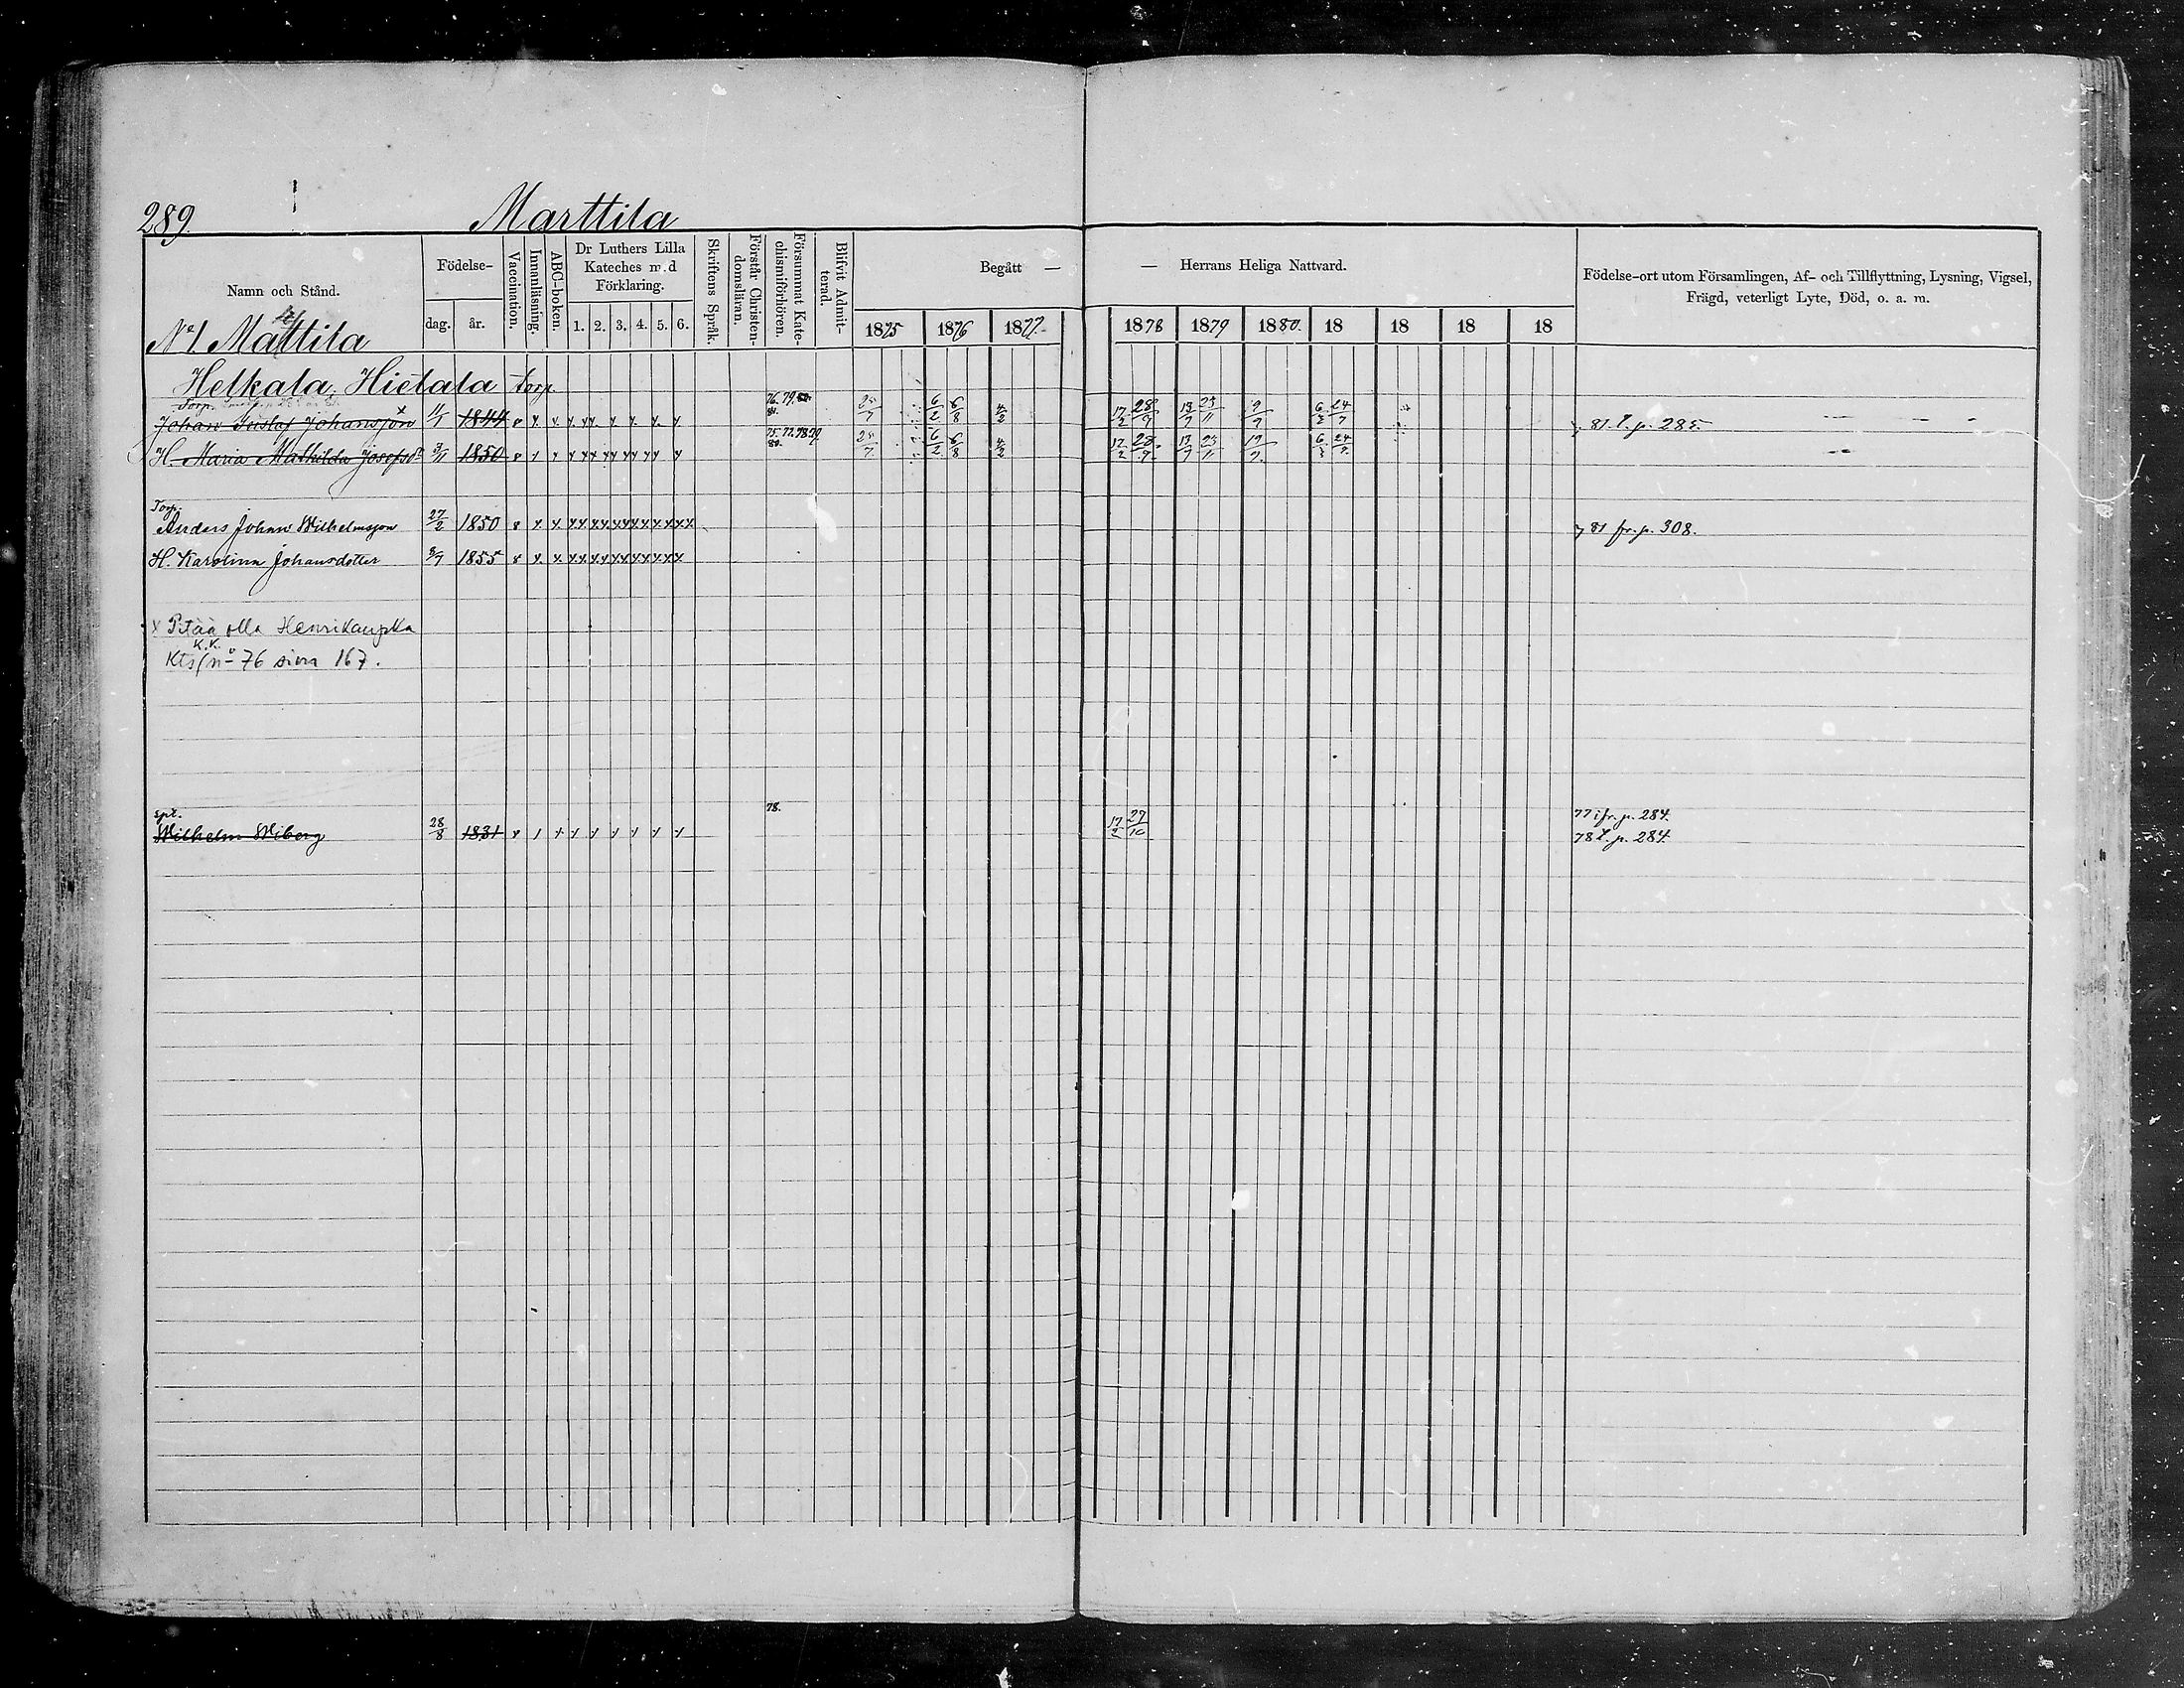 289. Marttila
Namn och Stånd.
Födelse-
dag. år.
Vaccination.
Innanläsning.
ABC-boken.
Dr Luthers Lilla Kateches med Förklaring.
1. 2. 3. 4. 5. 6.
Skriftens Språk.
Förstår Christendomsläran.
Försummat Katechismiförhören.
Blifvit Admitterad.
Begått — — Herrans Heliga Nattvard.
1875 1876 1877 1878 1879 1880 18 18 18 18
Födelse-ort utom Församlingen, Af- och Tillflyttning, Lysning, Vigsel,
Frägd, veterligt Lyte, Död, o. a. m.
No 1. Mattila
Helkala, Hietala torp
Torp.
Johan Gustaf Johansson x 11/1 1844 76. 79. 6/2 6/8 4/2 17/2 28/9 13/7 23/11 9/7 6/3 24/7 81 t. p. 285.
H. Maria Mathilda Josefsdr 3/11 1850 75. 77. 78. 79 80. 6/2 6/8 4/2 17/2 28/9 13/7 23/11 6/3 24/7
Torp.
Anders Johan Wilhelmsson 27/2 1850 81 fr. p. 308.
H. Karolina Johansdotter 1855
x Pitää olla Henrikanpka
K.K.
Kts no 76 sivu 167.
78. 77 ifr. p. 284.
Wilhelm Wiberg 28/8 1831 17/2 27/10 78 t. p. 284.